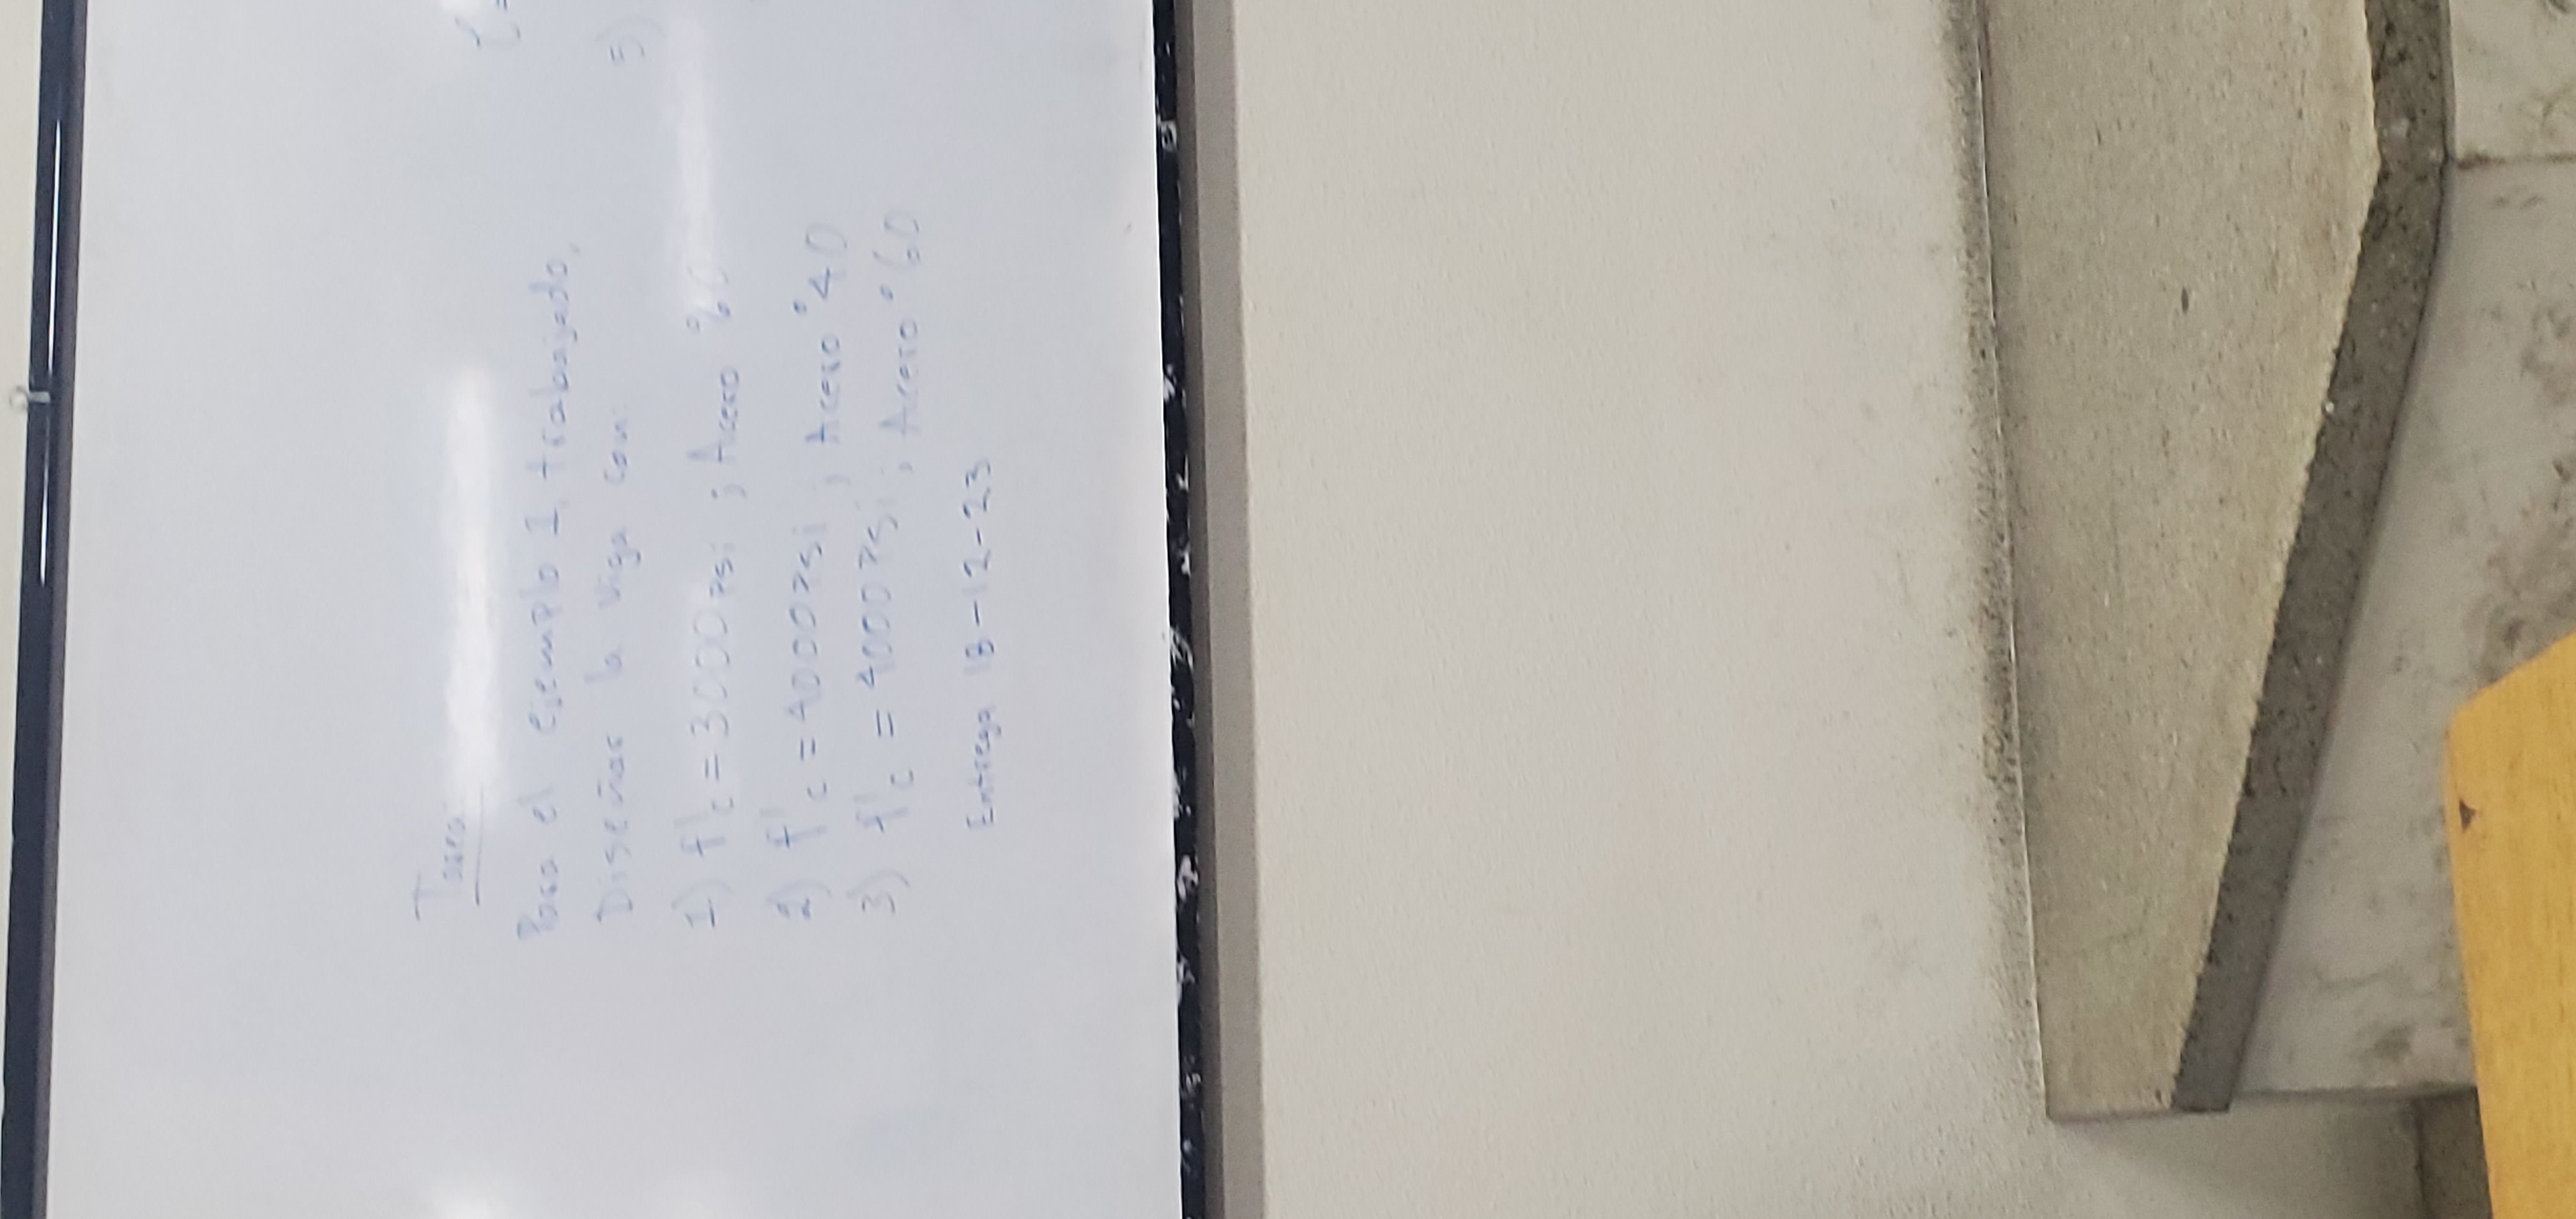 Tarea:
Para el ejemplo 1, trabajado,
Diseñar la viga con:
1) f'c = 3000 psi ; Acero °60
2) f'c = 4000 Psi ; Acero °40
3) f'c = 4000 Psi ; Acero °60
Entrega 18-12-23
5)